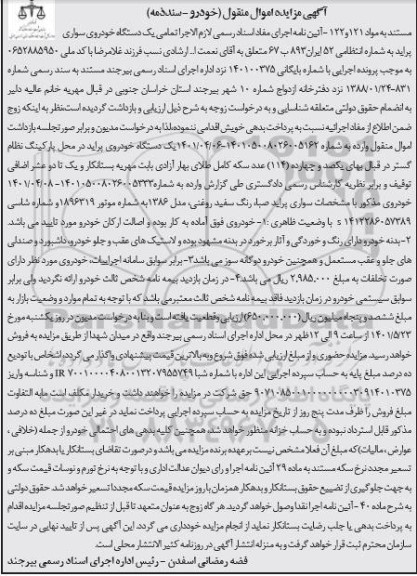 آگهی مزایده اموال منقول (خودرو - سند ذمه)
مستند به مواد ۱۲۱ و ۱۲۲ - آئین نامه اجرای مفاد اسناد رسمی لازم الاجرا تمامی یک دستگاه خودروی سواری
پراید به شماره انتظامی ۵۲ ایران ۸۹۳ ب ۶۷ متعلق به آقای نعمت ا... ارشادی نسب فرزند غلامرضا با کد ملی ۰۶۵۲۸۸۵۹۵۰
به موجب پرونده اجرایی با شماره بایگانی ۱۴۰۱۰۰۳۷۵ نزد اداره اجرای اسناد رسمی بیرجند مستند به سند رسمی شماره
۸۳۱-۱۳۸۸/۰۱/۲۴ نزد دفترخانه ازدواج شماره ۱۰ شهر بیرجند استان خراسان جنوبی در قبال مهریه خانم عالیه دلیر
به انضمام حقوق دولتی متعلقه شناسایی و به درخواست زوجه به شرح ذیل ارزیابی و بازداشت گردیده است نظر به اینکه زوج
ضمن اطلاع از مفاد اجرائیه نسبت به پرداخت بدهی خویش اقدامی ننموده لذا به درخواست مدیون و برابر صورتجلسه بازداشت
اموال منقول وارده به شماره ۱۴۰۱۰۵۰۰۸۰۲۶۰۰۵۱۶۲-۱۴۰۱/۰۴/۰۶ یک دستگاه خودروی پراید در محل پارکینگ نظام
گستر در قبال بهای یکصد و چهارده (۱۱۴) عدد سکه کامل طلای بهار آزادی بابت مهریه بستانکار و یک تا دو عشر اضافی
توقیف و برابر نظریه کارشناس رسمی دادگستری طی گزارش وارده به شماره ۱۴۰۱۰۵۰۰۸۰۲۶۰۰۵۳۳۳-۱۴۰۱/۰۴/۰۸
خودروی مذکور با مشخصات سواری پراید صبا، رنگ سفید روغنی، مدل ۱۳۸۶ به شماره موتور ۱۸۹۶۳۱۹ و شماره شاسی
۱۴۱۲۲۸۶۰۵۷۳۸۹ s با وضعیت ظاهری: ۱- خودروی فوق آماده به کار بوده و اصالت ارکان خودرو مورد تایید می باشد.
۲- بدنه خودرو دارای رنگ و خوردگی و آثار برخورد در بدنه مشهود بوده و لاستیک های عقب و جلو خودرو، داشبورد و صندلی
های جلو و عقب مستعمل و همچنین خودرو دوگانه سوز می باشد ۳- برابر سوابق سامانه اجراییات، خودروی مورد نظر دارای
صورت تخلفات به مبلغ ۲.۹۸۵.۰۰۰ ریال می باشد. ۴- در زمان بازدید بیمه نامه شخص ثالث خودرو ارائه نگردید ولی برابر
سوابق سیستمی خودرو در زمان بازدید فاقد بیمه نامه شخص ثالث معتبر می باشد که با توجه به تمام موارد و وضعیت بازار به
مبلغ ششصد و پنجاه میلیون ریال (۶۵۰.۰۰۰.۰۰۰) ارزیابی و قطعیت یافته است و بنا به درخواست مدیون در روز یکشنبه مورخ
۱۴۰۱/۵/۲۳ از ساعت ۹ الی ۱۲ ظهر در محل اداره اجرای اسناد رسمی بیرجند واقع در میدان شهدا از طریق مزایده به فروش
خواهد رسید. مزایده حضوری و از مبلغ ارزیابی شده فوق شروع و به بالاترین قیمت پیشنهادی واگذار می گردد، اشخاص با تودیع
ده درصد مبلغ پایه به حساب سپرده اجرایی این اداره با شماره شبا IR ۷۰۰۱۰۰۰۰۴۰۸۰۰۱۳۲۰۷۹۵۵۷۴۹ و شناسه واریز
۹۰۷۱۰۸۵۰۱۰۰۰۰۰۰۰۰۰۰۳۰۹۱۴۰۱۰۳۷۵ حق شرکت در مزایده را خواهند داشت و خریدار مکلف است مابه التفاوت
مبلغ فروش را ظرف مدت پنج روز از تاریخ مزایده به حساب سپرده اجرایی پرداخت نماید در غیر این صورت مبلغ ده درصد
مذکور قابل استرداد نبوده و به حساب خزانه منظور خواهد شد، همچنین کلیه بدهی های احتمالی خودرو از جمله (خلافی،
عوارض، مالیات) که مبلغ آن فعلا مشخص نیست بر عهده برنده مزایده می باشد و در صورت تقاضای بستانکار یا بدهکار مبنی بر
تسعیر مجدد نرخ سکه مستند به ماده ۲۹ آئین نامه اجرا و رای دیوان عدالت اداری و با توجه به نرخ تورم و نوسات قیمت سکه و
به جهت جلوگیری از تضییع حقوق بستانکار و بدهکار همزمان با روز مزایده قیمت سکه مجددا تسعیر خواهد شد. حقوق دولتی
به شرح ماده ۴۰- آئین نامه اجرا نقدا وصول خواهد گردید. هر گاه زوج به عنوان متعهد تا قبل از تنظیم صورتجلسه مزایده اقدام
به پرداخت بدهی یا جلب رضایت بستانکار نماید از انجام مزایده خودداری می گردد این آگهی پس از تایید نهایی در سایت
سازمان محترم ثبت قرار خواهد گرفت و به منزله انتشار آگهی در روزنامه کثیر الانتشار محلی است.
فضه رمضانی اسفدن - رئیس اداره اجرای اسناد رسمی بیرجند